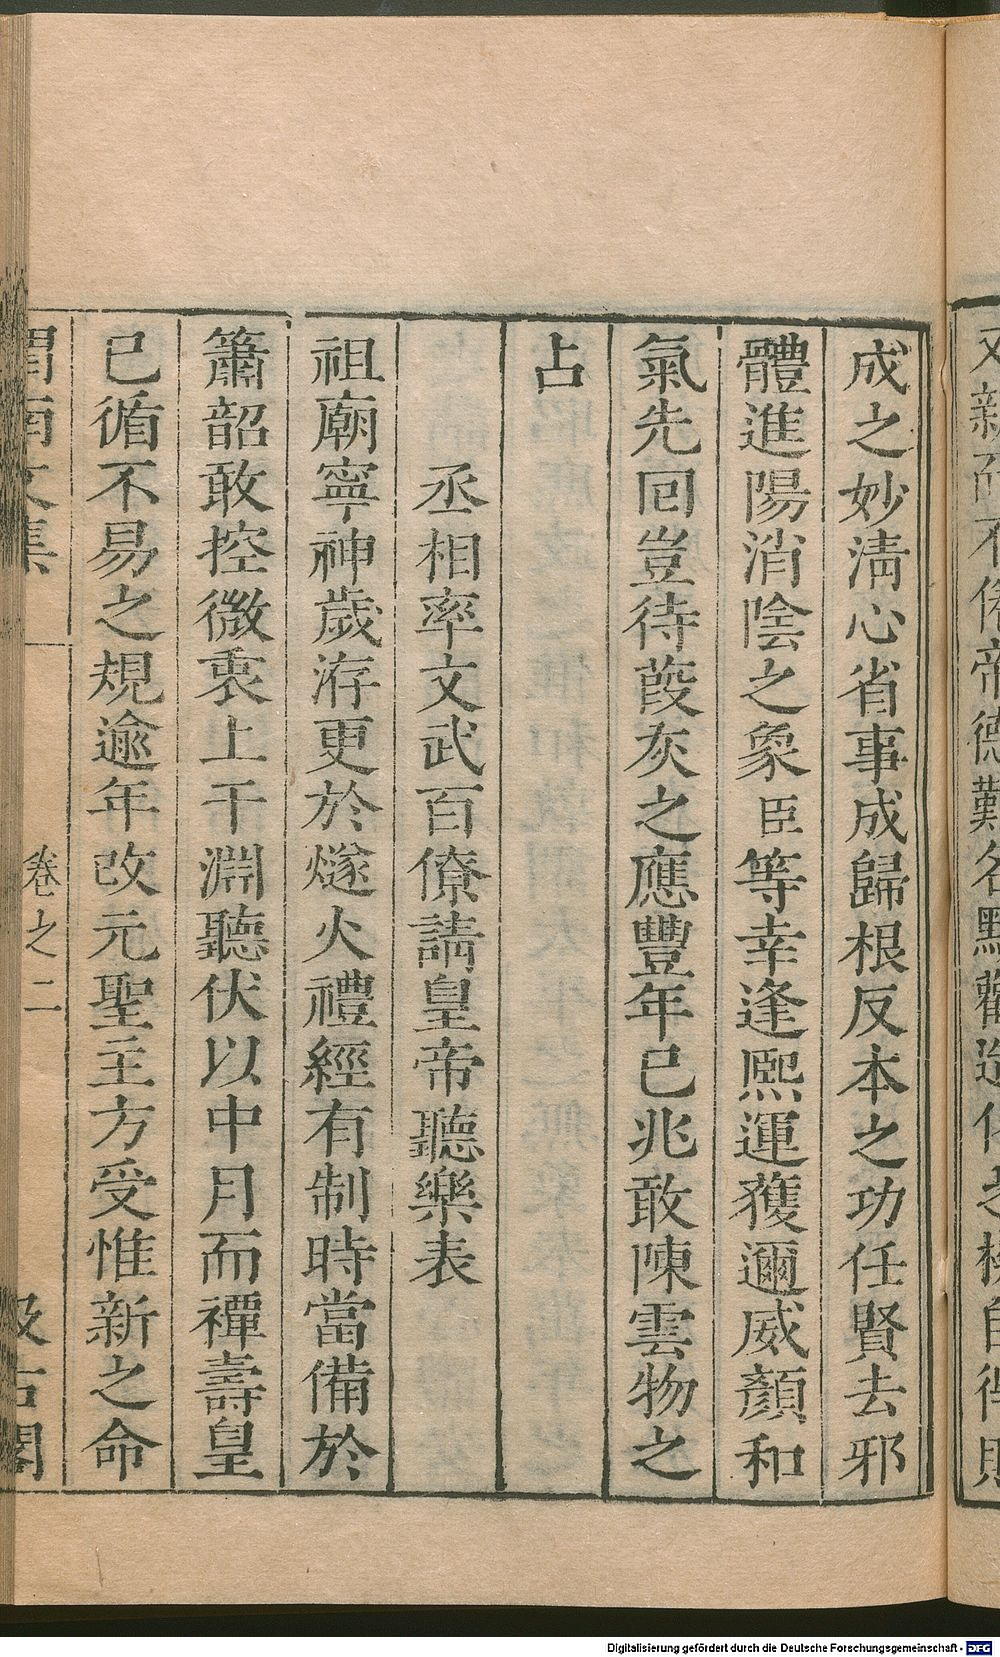 成之妙淸心省事成歸根反本之功任賢去邪
體進陽消陰之象臣等幸逢熙運獲邇威顏和
氣先回豈待葭灰之應豐年已兆敢陳雲物之
占
丞相率文武百僚請皇帝聽樂表
祖廟寧神歲洊更於燧火禮經有制時當備於
簫韶敢控微衷上干淵聽伏以中月而禫壽皇
已循不易之規逾年改元聖主方受惟新之命
渭南文集 卷之二 汲古閣
Digitalisierung gefördert durch die Deutsche Forschungsgemeinschaft - DFG